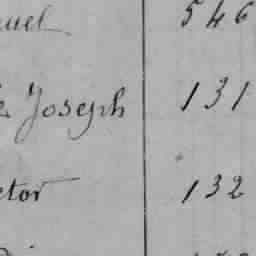 uel 546
Joseph 131
ctor 132